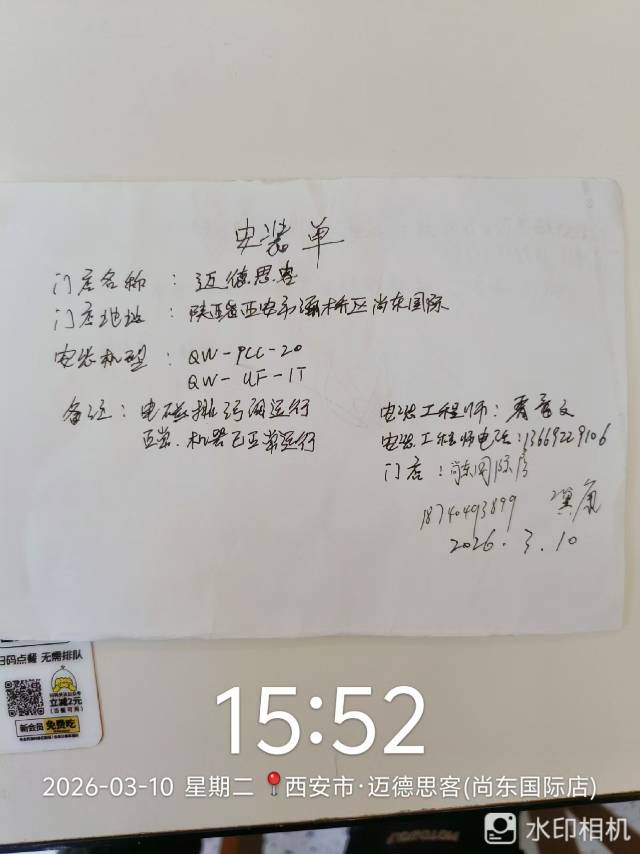 安装单
门店名称：迈德思客
门店地址：陕西省西安市灞桥区尚东国际
安装机型：QW-PCC-20
QW-UF-1T
备注：电磁排污阀运行
正常.机器已正常运行
安装工程师：
安装工程师电话：13669229106
门店：尚东国际店
18740493899
2026.3.10
扫码点餐 无需排队
立减2元
新会员 免费吃
15:52
2026-03-10 星期二 西安市·迈德思客(尚东国际店)
水印相机